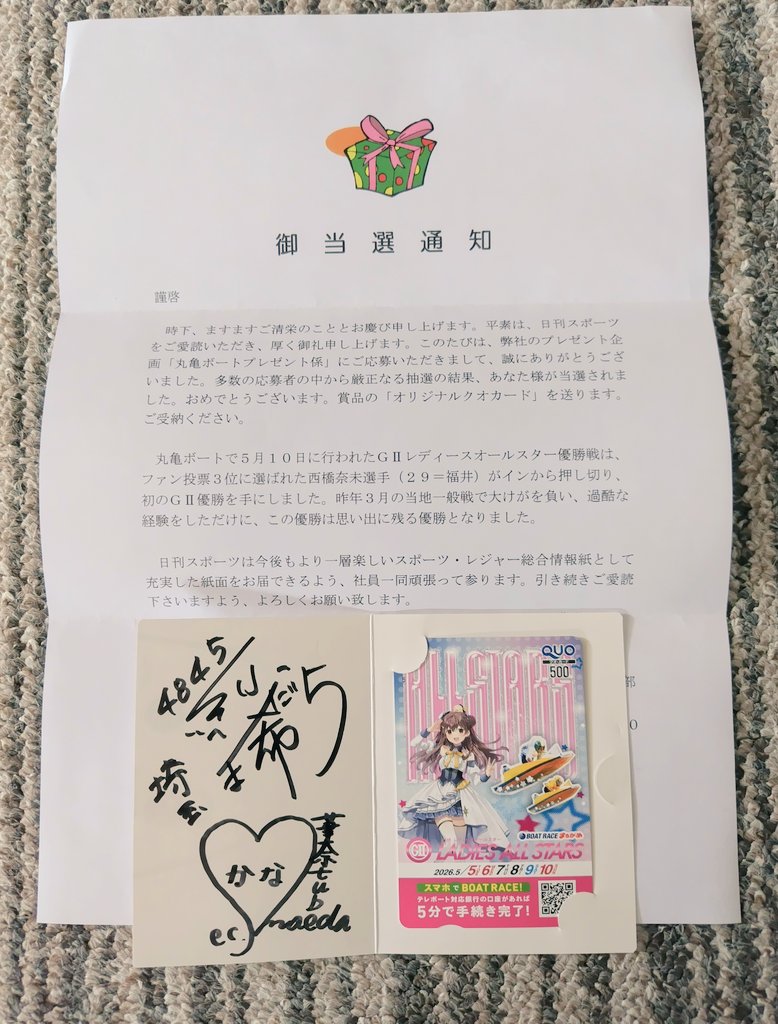 御当選通知
謹啓
時下、ますますご清栄のこととお慶び申し上げます。平素は、日刊スポーツ
をご愛読いただき、厚く御礼申し上げます。このたびは、弊社のプレゼント企
画「丸亀ボートプレゼント係」にご応募いただきまして、誠にありがとうござ
いました。多数の応募者の中から厳正なる抽選の結果、あなた様が当選されま
した。おめでとうございます。賞品の「オリジナルクオカード」を送ります。
ご受納ください。
丸亀ボートで5月10日に行われたGⅡレディースオールスター優勝戦は、
ファン投票3位に選ばれた西橋奈未選手（29＝福井）がインから押し切り、
初のGⅡ優勝を手にしました。昨年3月の当地一般戦で大けがを負い、過酷な
経験をしただけに、この優勝は思い出に残る優勝となりました。
日刊スポーツは今後もより一層楽しいスポーツ・レジャー総合情報紙として
充実した紙面をお届できるよう、社員一同頑張って参ります。引き続きご愛読
下さいますよう、よろしくお願い致します。
部
0
4845
埼玉
かな
maeda
QUO
500
ALL STARS
BOAT RACE まるがめ
GⅡ LADIES ALL STARS
2026.5/5 6 7 8 9 10
スマホでBOAT RACE!
テレボート対応銀行の口座があれば
5分で手続き完了!